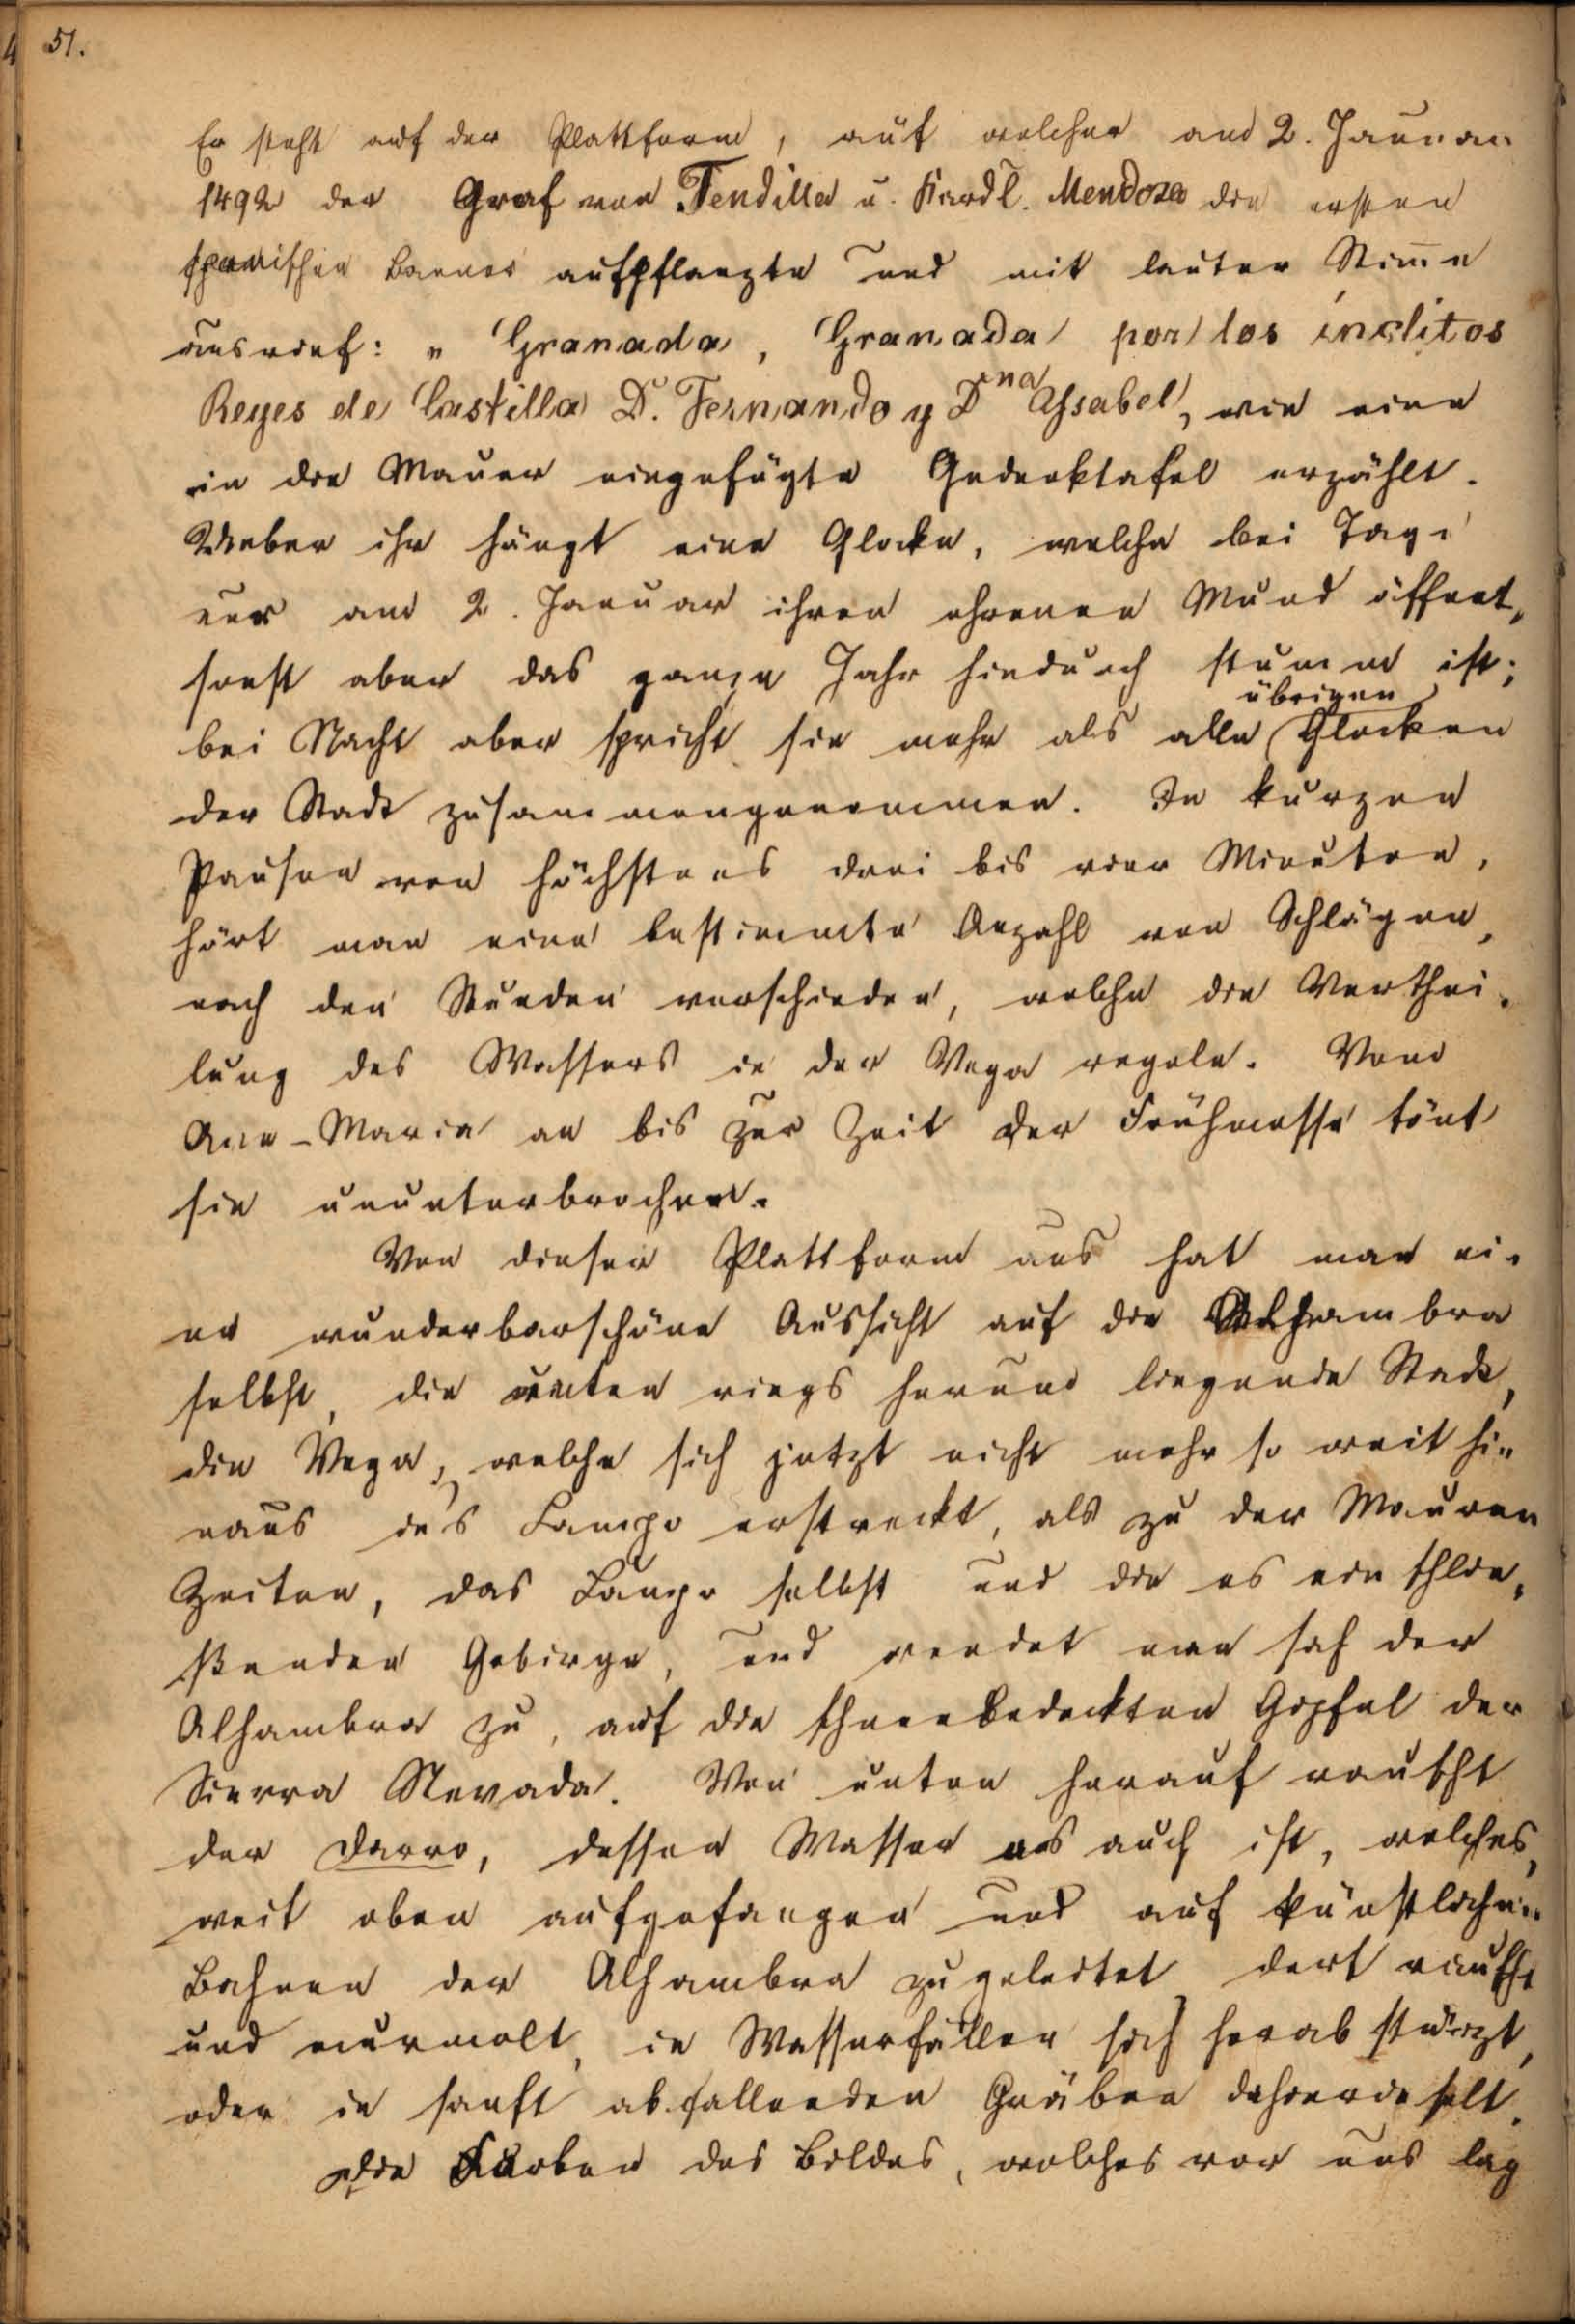 51.
Er steht auf der Plattform, auf welcher am 2. Januar
1492 der Graf von Tendilla u. Kardl. Mendoza die ersten
spanischen Banner aufpflanzte und mit lauter Stim̅e
ausrief: „Granada, Granada por los ínclitos
Reyes de Castilla D. Fernando y Dna Yssabel, wie eine
in die Mauer eingefügte Gedenktafel erzählt.
Ueber ihr hängt eine Glocke, welche bei Tage
nur am 2. Januar ihren ehrenen Mund öffnet,
sonst aber das ganze Jahr hindurch stumm ist;
bei Nacht aber spricht sie mehr als alle übrigen Glocken
der Stadt zusammengenommen. In kurzen
Pausen von höchstens drei bis vier Minuten,
hört man eine bestimmte Anzahl von Schlägen,
nach den Stunden verschieden, welche die Verthei-
lung des Wassers in der Vega regeln. Vom
Ave-Maria an bis zur Zeit der Frühmesse tönt
sie ununterbrochen.
Von dieser Plattform aus hat man ei-
ne wunderbarschöne Aussicht auf die Alhambra
selbst, die unten rings herum liegende Stadt,
die Vega, welche sich jetzt nicht mehr so weit hi-
naus in's Campo erstreckt, als zu der Mauren
Zeiten, das Campo selbst und die es einschlie-
ßenden Gebirge, und wendet man sich der
Alhambra zu, auf die schneebedeckten Gipfel der
Sierra Nevada. Von unten herauf rauscht
der Darro, dessen Wasser es auch ist, welches,
weit oben aufgefangen und auf künstlichen
Bahnen der Alhambra zugeleitet dort rauscht
und murmelt, in Wasserfällen sich herabstürzt,
oder in sanft abfallenden Gräben dahinrieselt.
Die Farben des Bildes, welches vor uns lag